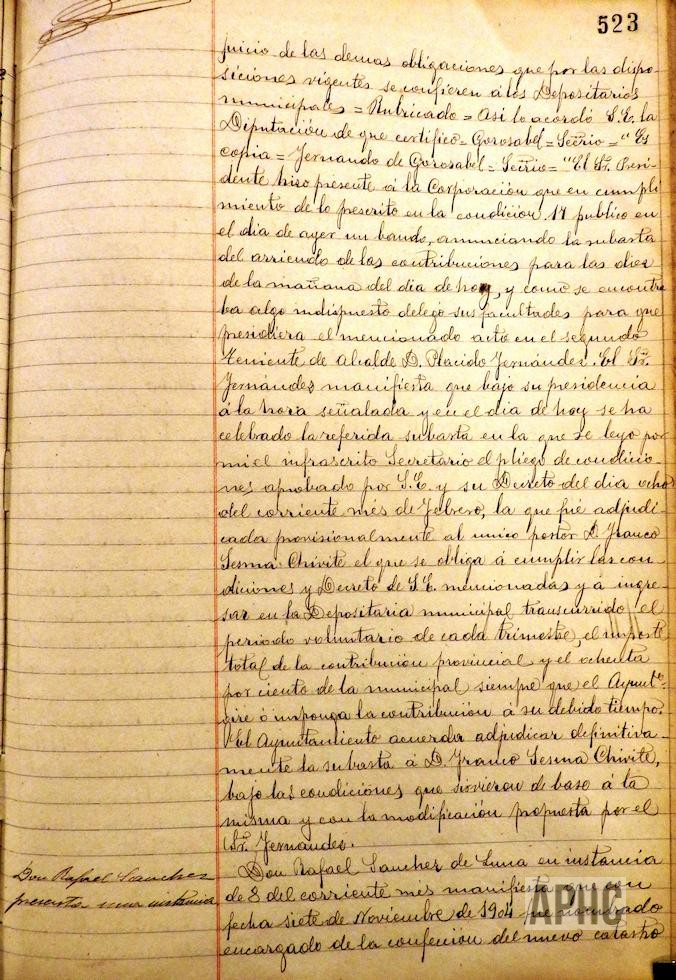 523
juicio de las demas obligaciones que por las dispo-
siciones vigentes se confieren á los Depositarios
municipales = Rubricado = Asi lo acordó S.E. la
Diputación de que certifico = Gorosabel = Secrio = "Es
copia = Fernando de Gorosabel = Secrio = "El Sr. Presi-
dente hizo presente á la Corporación que en cumpli
miento de lo prescrito en la condición 17 publico en
el dia de ayer un bando, anunciando la subasta
del arriendo de las contribuciones para las diez
de la mañana del dia de hoy, y como se encontra
ba algo indispuesto delegó sus facultades para que
presidiera el mencionado acto en el segundo
Teniente de Alcalde D. Placido Fernández. El Sr.
Fernández manifiesta que bajo su presidencia
á la hora señalada y en el dia de hoy se ha
celebrado la referida subasta en la que se leyo por
mi el infrascrito Secretario el pliego de condicio-
nes aprobado por S.E. y su Decreto del dia ocho
del corriente més de Febrero, la que fué adjudi-
cada provisionalmente al unico postor D. Franco
Sesma Chivite el que se obliga á cumplir las con-
diciones y Decreto de S.E. mencionadas y á ingre-
sar en la Depositaria municipal transcurrido el
periodo voluntario de cada trimestre, el importe
total de la contribucion provincial y el ochenta
por ciento de la municipal siempre que el Ayuntº
gire ó imponga la contribución á su debido tiempo.
El Ayuntamiento acuerda adjudicar definitiva-
mente la subasta á D. Franco Sesma Chivite,
bajo las condiciones que sirvieron de base á la
misma y con la modificación propuesta por el
Sr. Fernández.
Don Rafael Sanchez
presenta una instancia
Don Rafael Sanchez de Luna en instancia
de 8 del corriente més manifiesta que con
fecha siete de Noviembre de 1904 fue nombrado
encargado de la confección del nuevo catastro
APHC